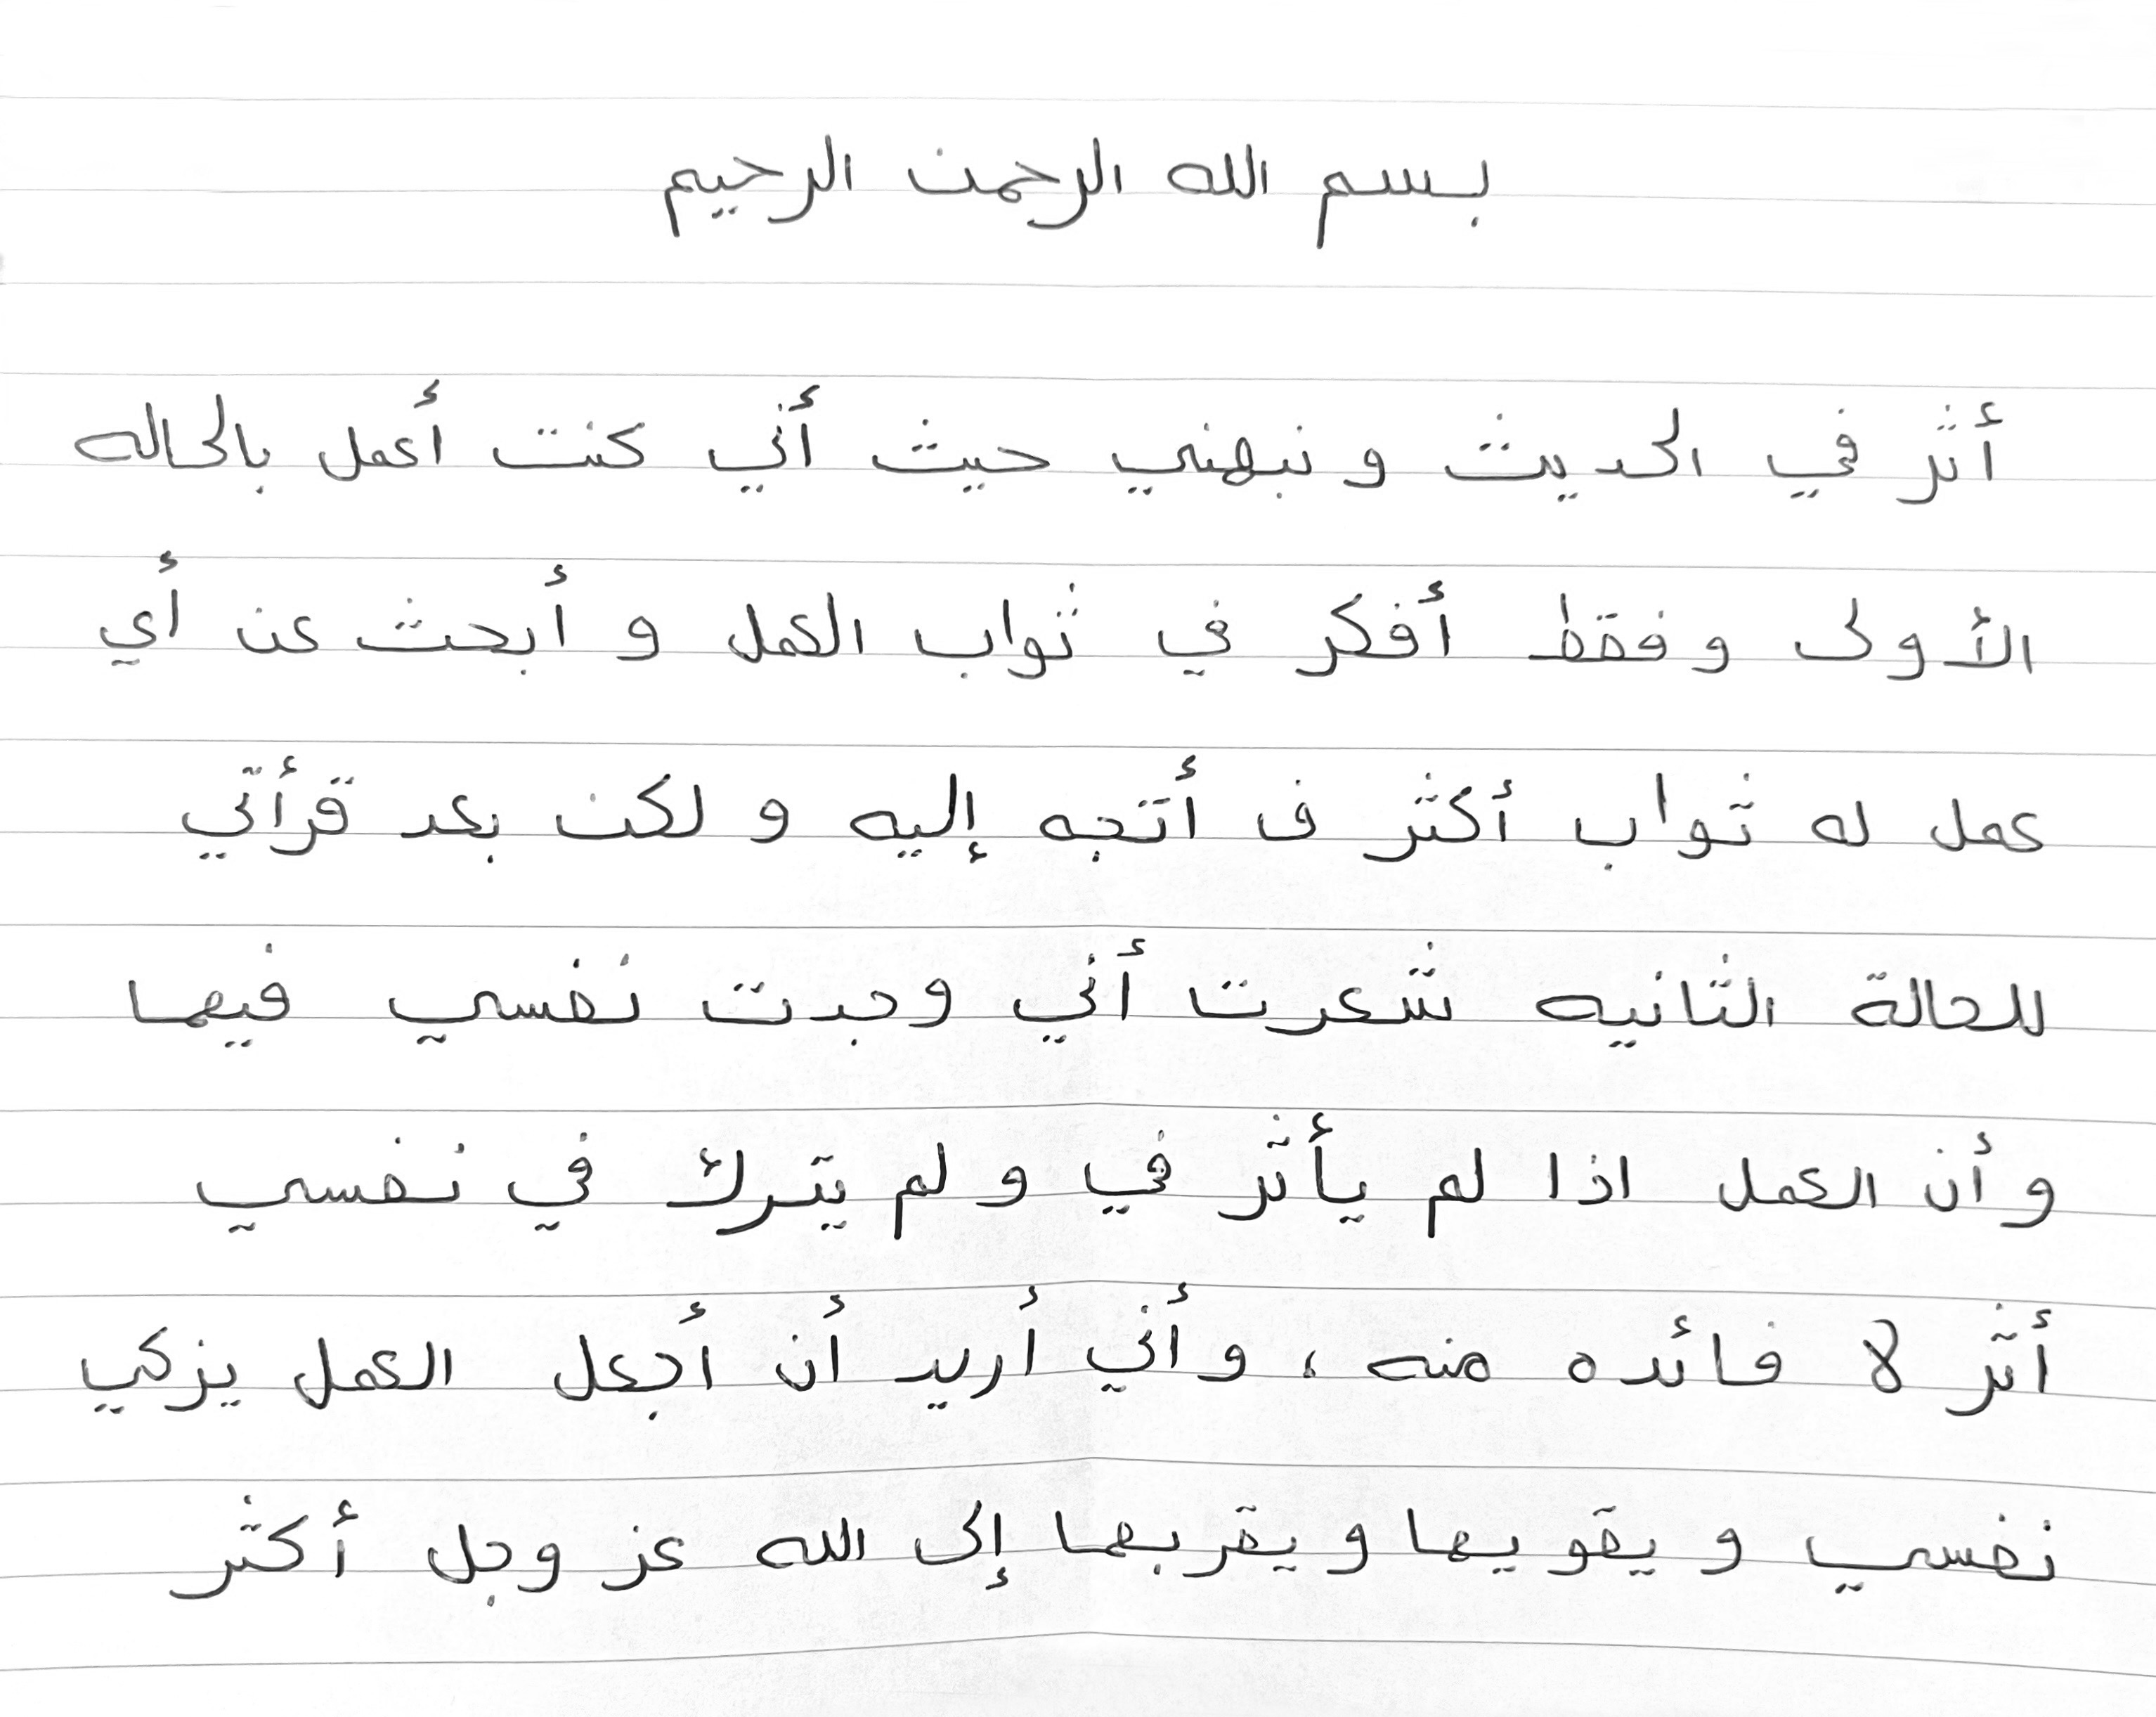 بسم الله الرحمن الرحيم
أثر في الحديث و نبهني حيث أني كنت أعمل بالحاله
الأولى وفقط أفكر في ثواب العمل و أبحث عن أي
عمل له ثواب أكثر ف أتجه إليه و لكن بعد قرأتي
للحالة الثانيه شعرت أني وجدت نفسي فيها
و أن العمل اذا لم يأثر في و لم يترك في نفسي
أثر لا فائده منه ، و أني أريد أن أجعل العمل يزكي
نفسي و يقويها و يقربها إلى الله عز وجل أكثر